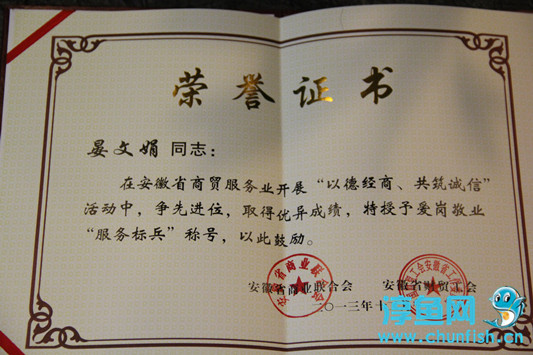 荣誉证书
晏文娟 同志：
在安徽省商贸服务业开展“以德经商、共筑诚信”
活动中，争先进位，取得优异成绩，特授予爱岗敬业
“服务标兵”称号，以此鼓励。
安徽省商业联合会 安徽省财贸工会
二〇一三年十
淳鱼网
www.chunfish.cn